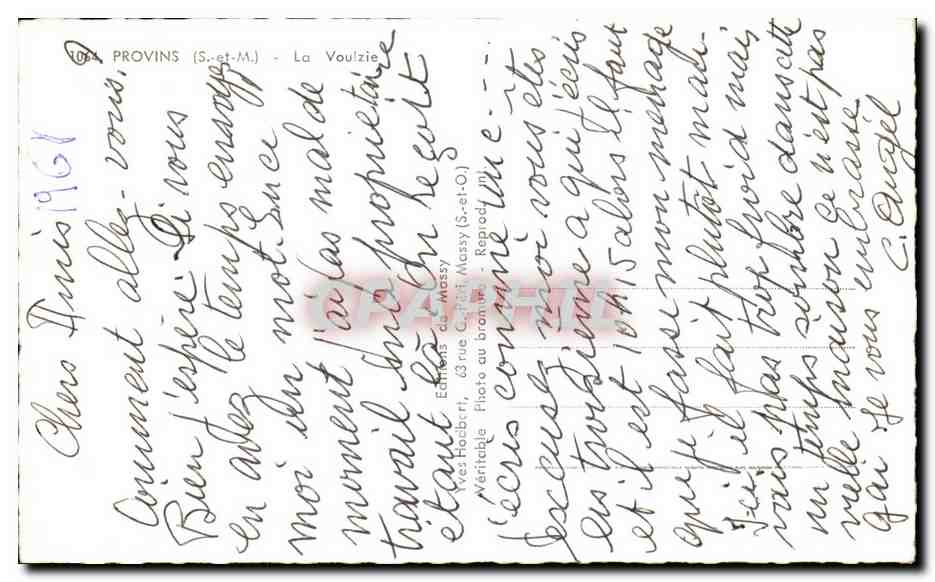 1064 PROVINS (S.-et-M.) - La Voulzie
1961
Chers Amis
Comment allez-vous,
Bien j'espère. Si vous
en avez le temps envoyez
moi un mot. En ce
moment j'ai pas mal de
travail la propriétaire
étant là on reçoit
j'écris comme une ---
excusez moi vous êtes
les troisième a qui j'écris
et il est 10H15 alors il faut
que je fasse mon menage
Ici il fait plutôt mau-
vais pas trop froid mais
un temps sombre dans cette
vieille maison ce n'est pas
gai Je vous embrasse
C. Angél
Editions de Massy
Yves Hodbert, 63 rue G.-Péri, Massy (S.-et-O.)
Véritable Photo au bromure - Reprod. int.
CPAPHIL